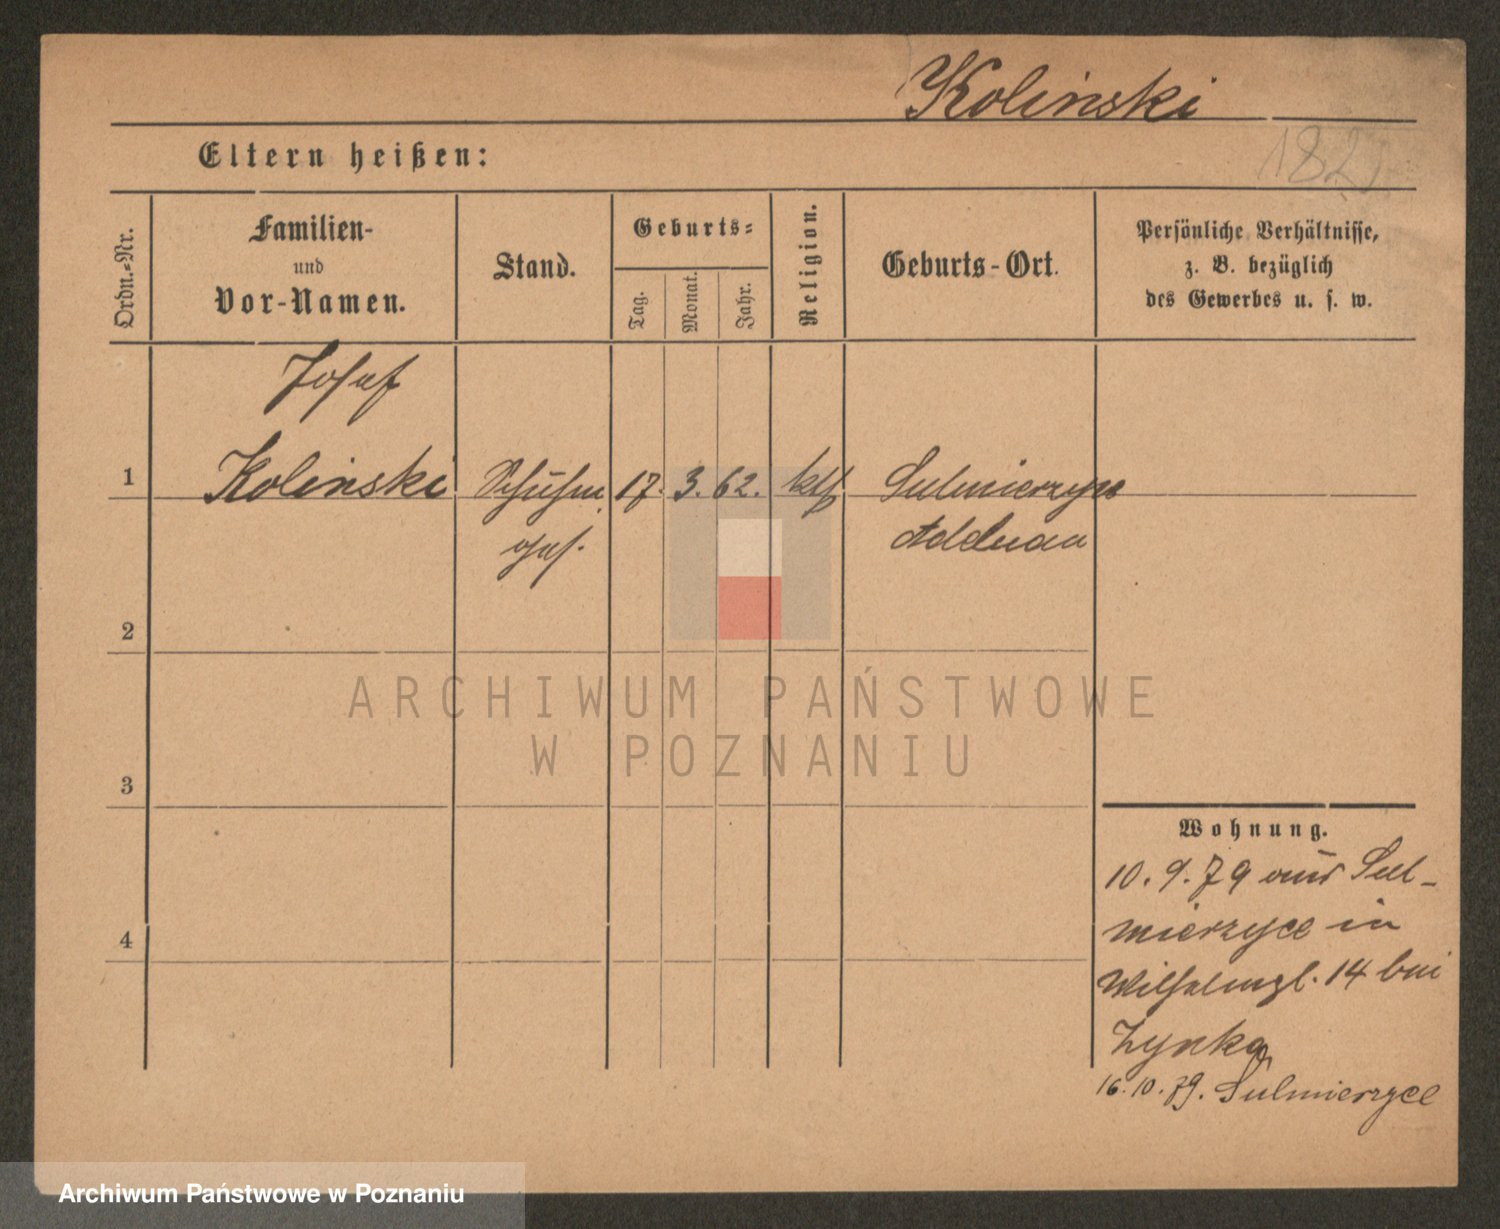 Koliński
182
Eltern heißen:
Ordn.-Nr.
Familien-
und
Vor-Namen.
Stand.
Geburts-
Tag.
Monat.
Jahr.
Religion.
Geburts-Ort.
Persönliche Verhältnisse,
z. B. bezüglich
des Gewerbes u. s. w.
Josef
1
Koliński
Schuhm.
17. 3. 62.
kth
Sulmierzyce
ges.
Adelnau
2
3
4
ARCHIWUM PAŃSTWOWE
W POZNANIU
Wohnung.
10. 9. 79 aus Sul-
mierzyce in
Wilhelmpl. 14 bei
Zynka
16. 10. 79. Sulmierzyce
Archiwum Państwowe w Poznaniu